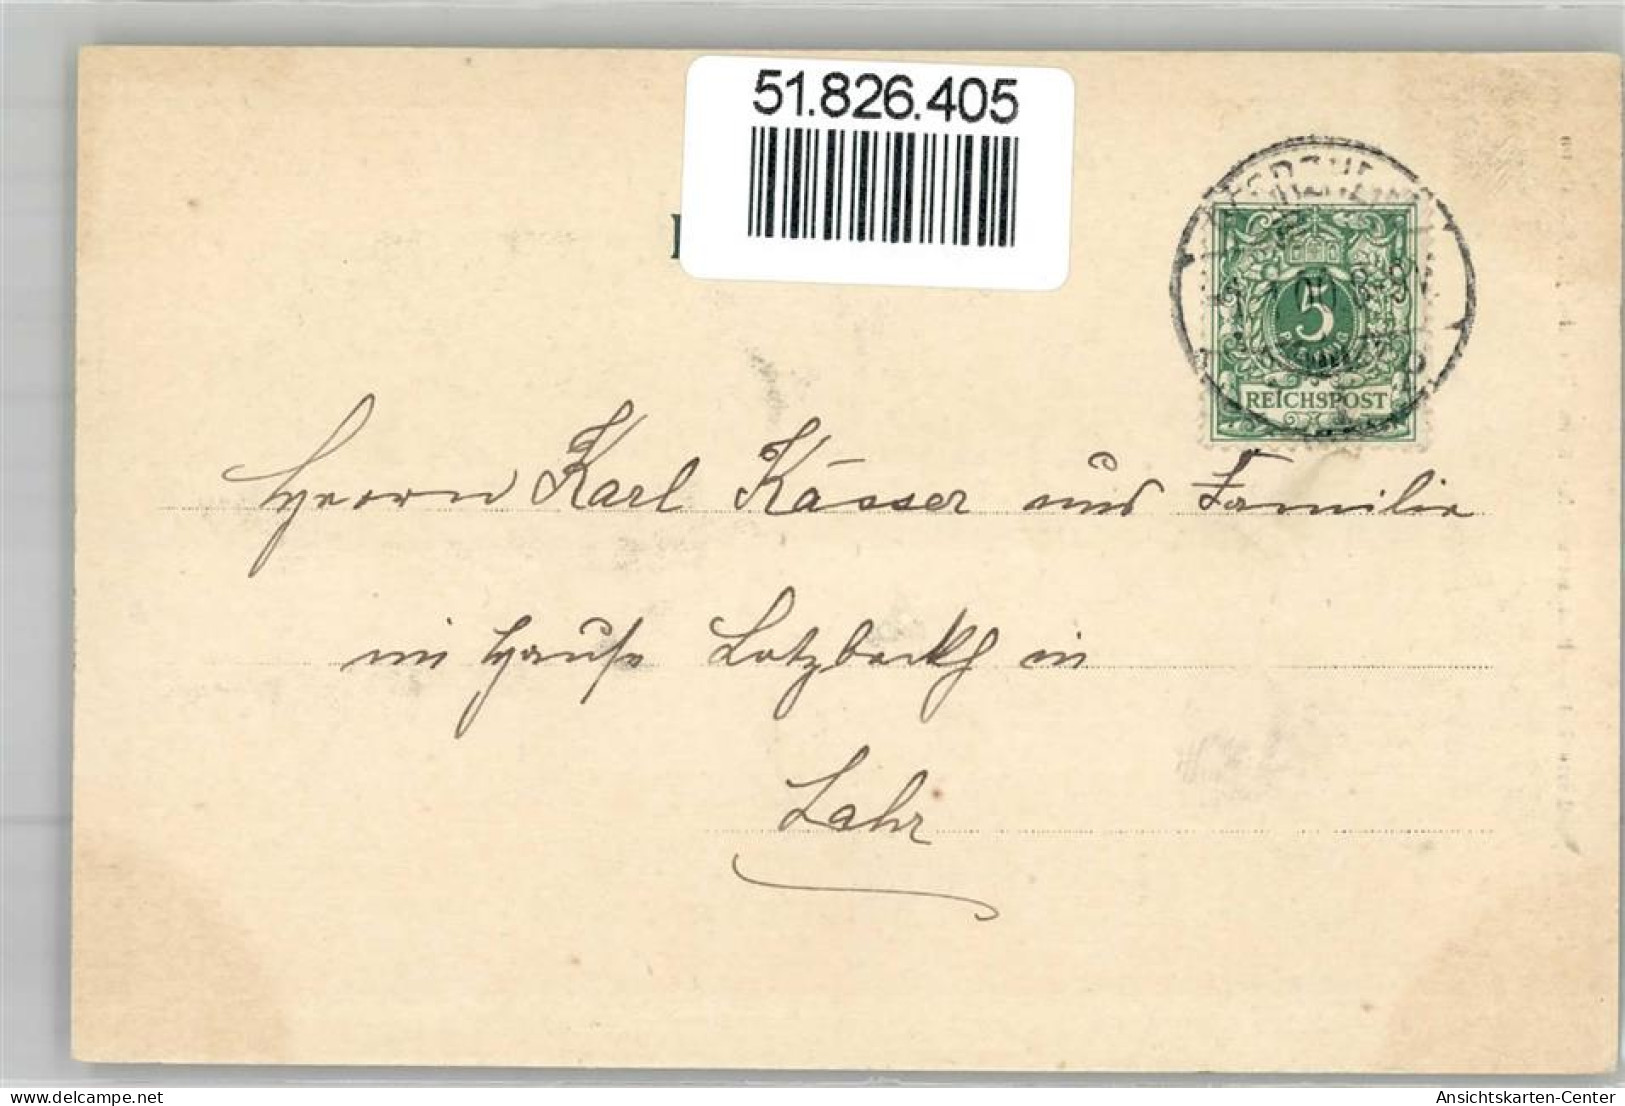 51.826.405
5
PFENNIG
REICHSPOST
Herrn Karl Kässer und Familie
im Hause Lotzbeckh in
Lahr
Ansichtskarten-Center